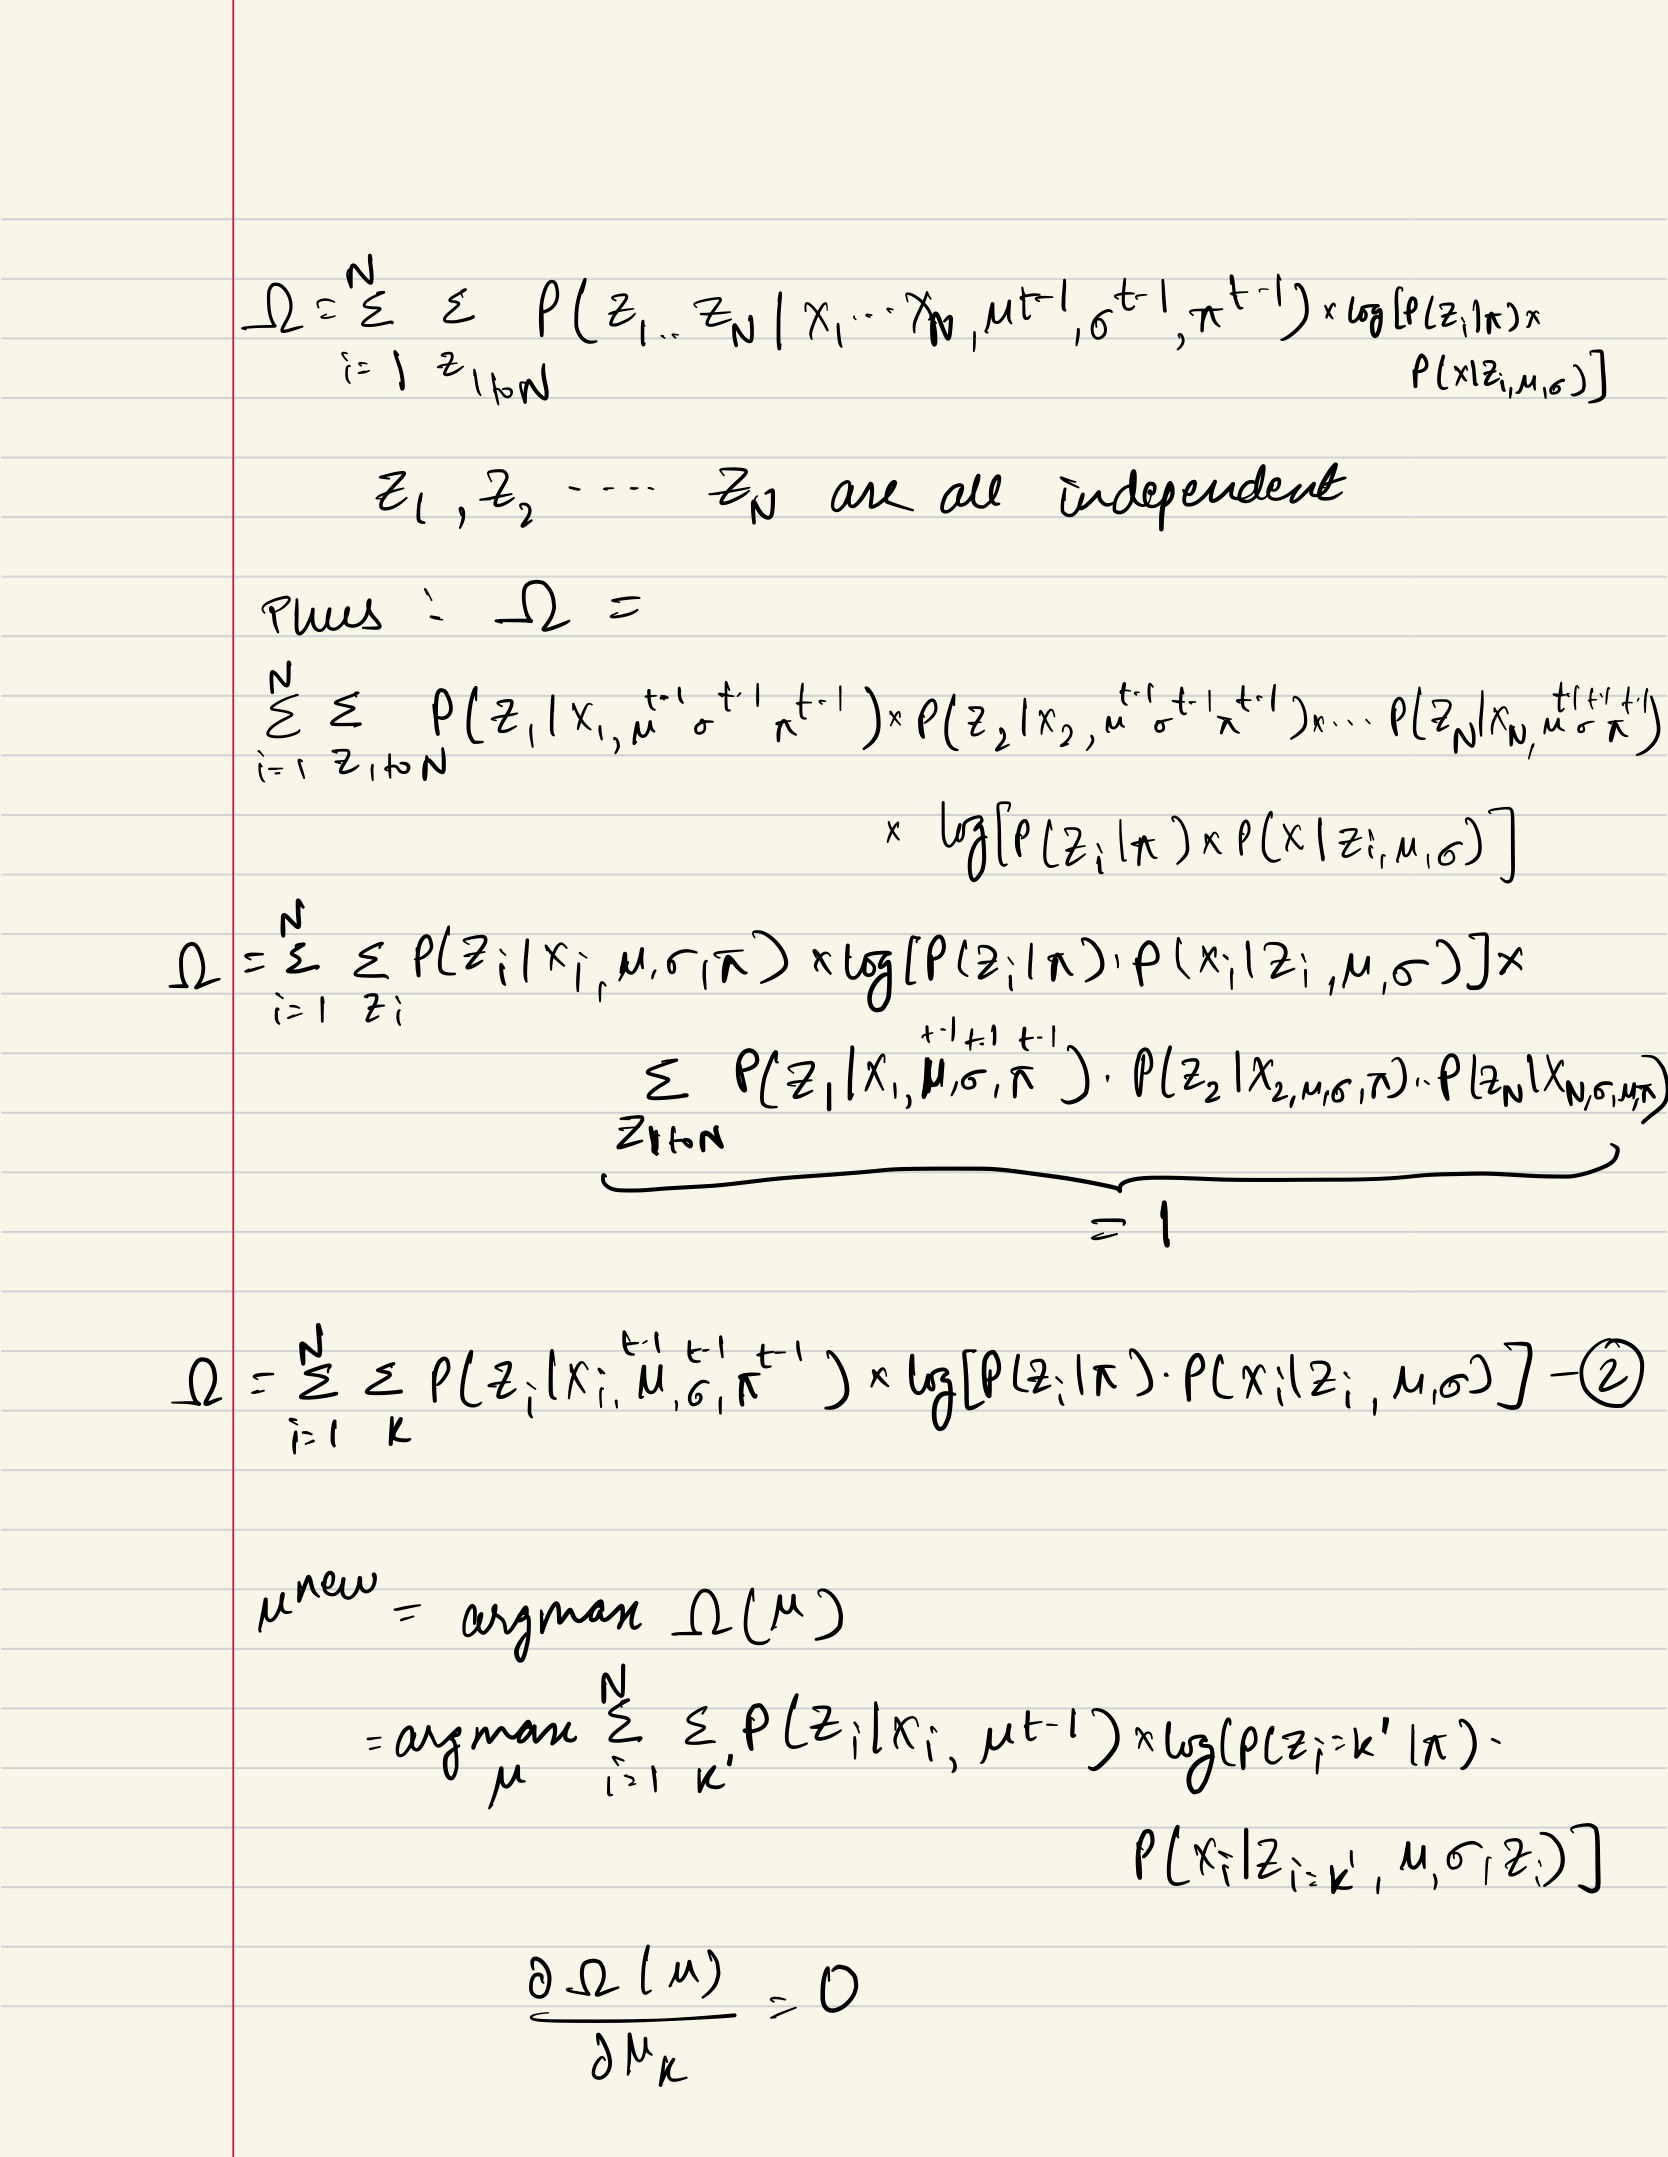 Ω = Σ_{i=1}^{N} Σ_{z_{1 to N}} P(z_1.. z_N | x_1 ... x_N, μ^{t-1}, σ^{t-1}, π^{t-1}) × log[P(z_i|π) ×
P(x|z_i, μ, σ)]
z_1, z_2 ---- z_N are all independent
Thus : Ω =
Σ_{i=1}^{N} Σ_{z_{1 to N}} P(z_1 | x_1, μ^{t-1} σ^{t-1} π^{t-1}) × P(z_2 | x_2, μ^{t-1} σ^{t-1} π^{t-1}) × .... P(z_N | x_N, μ^{t-1} σ^{t-1} π^{t-1})
× log[P(z_i | π) × P(x | z_i, μ, σ)]
Ω = Σ_{i=1}^{N} Σ_{z_i} P(z_i | x_i, μ, σ, π) × log[P(z_i | π) · P(x_i | z_i, μ, σ)] ×
Σ_{z_{1 to N}} P(z_1 | x_1, μ^{t-1}, σ^{t-1}, π^{t-1}) · P(z_2 | x_2, μ, σ, π) .. P(z_N | x_N, σ, μ, π)
= 1
Ω = Σ_{i=1}^{N} Σ_{k} P(z_i | x_i, μ^{t-1}, σ^{t-1}, π^{t-1}) × log[P(z_i | π) · P(x_i | z_i, μ, σ)] - ②
μ^{new} = argmax Ω(μ)
= argmax_{μ} Σ_{i=1}^{N} Σ_{k'} P(z_i | x_i, μ^{t-1}) × log(P(z_i = k' | π) ·
P(x_i | z_{i=k'}, μ, σ, z_i)]
∂Ω(μ) / ∂μ_k = 0